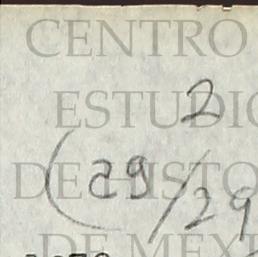 CENTRO
2
ESTUDIO
(29/29
DE HISTO
DE MEXI